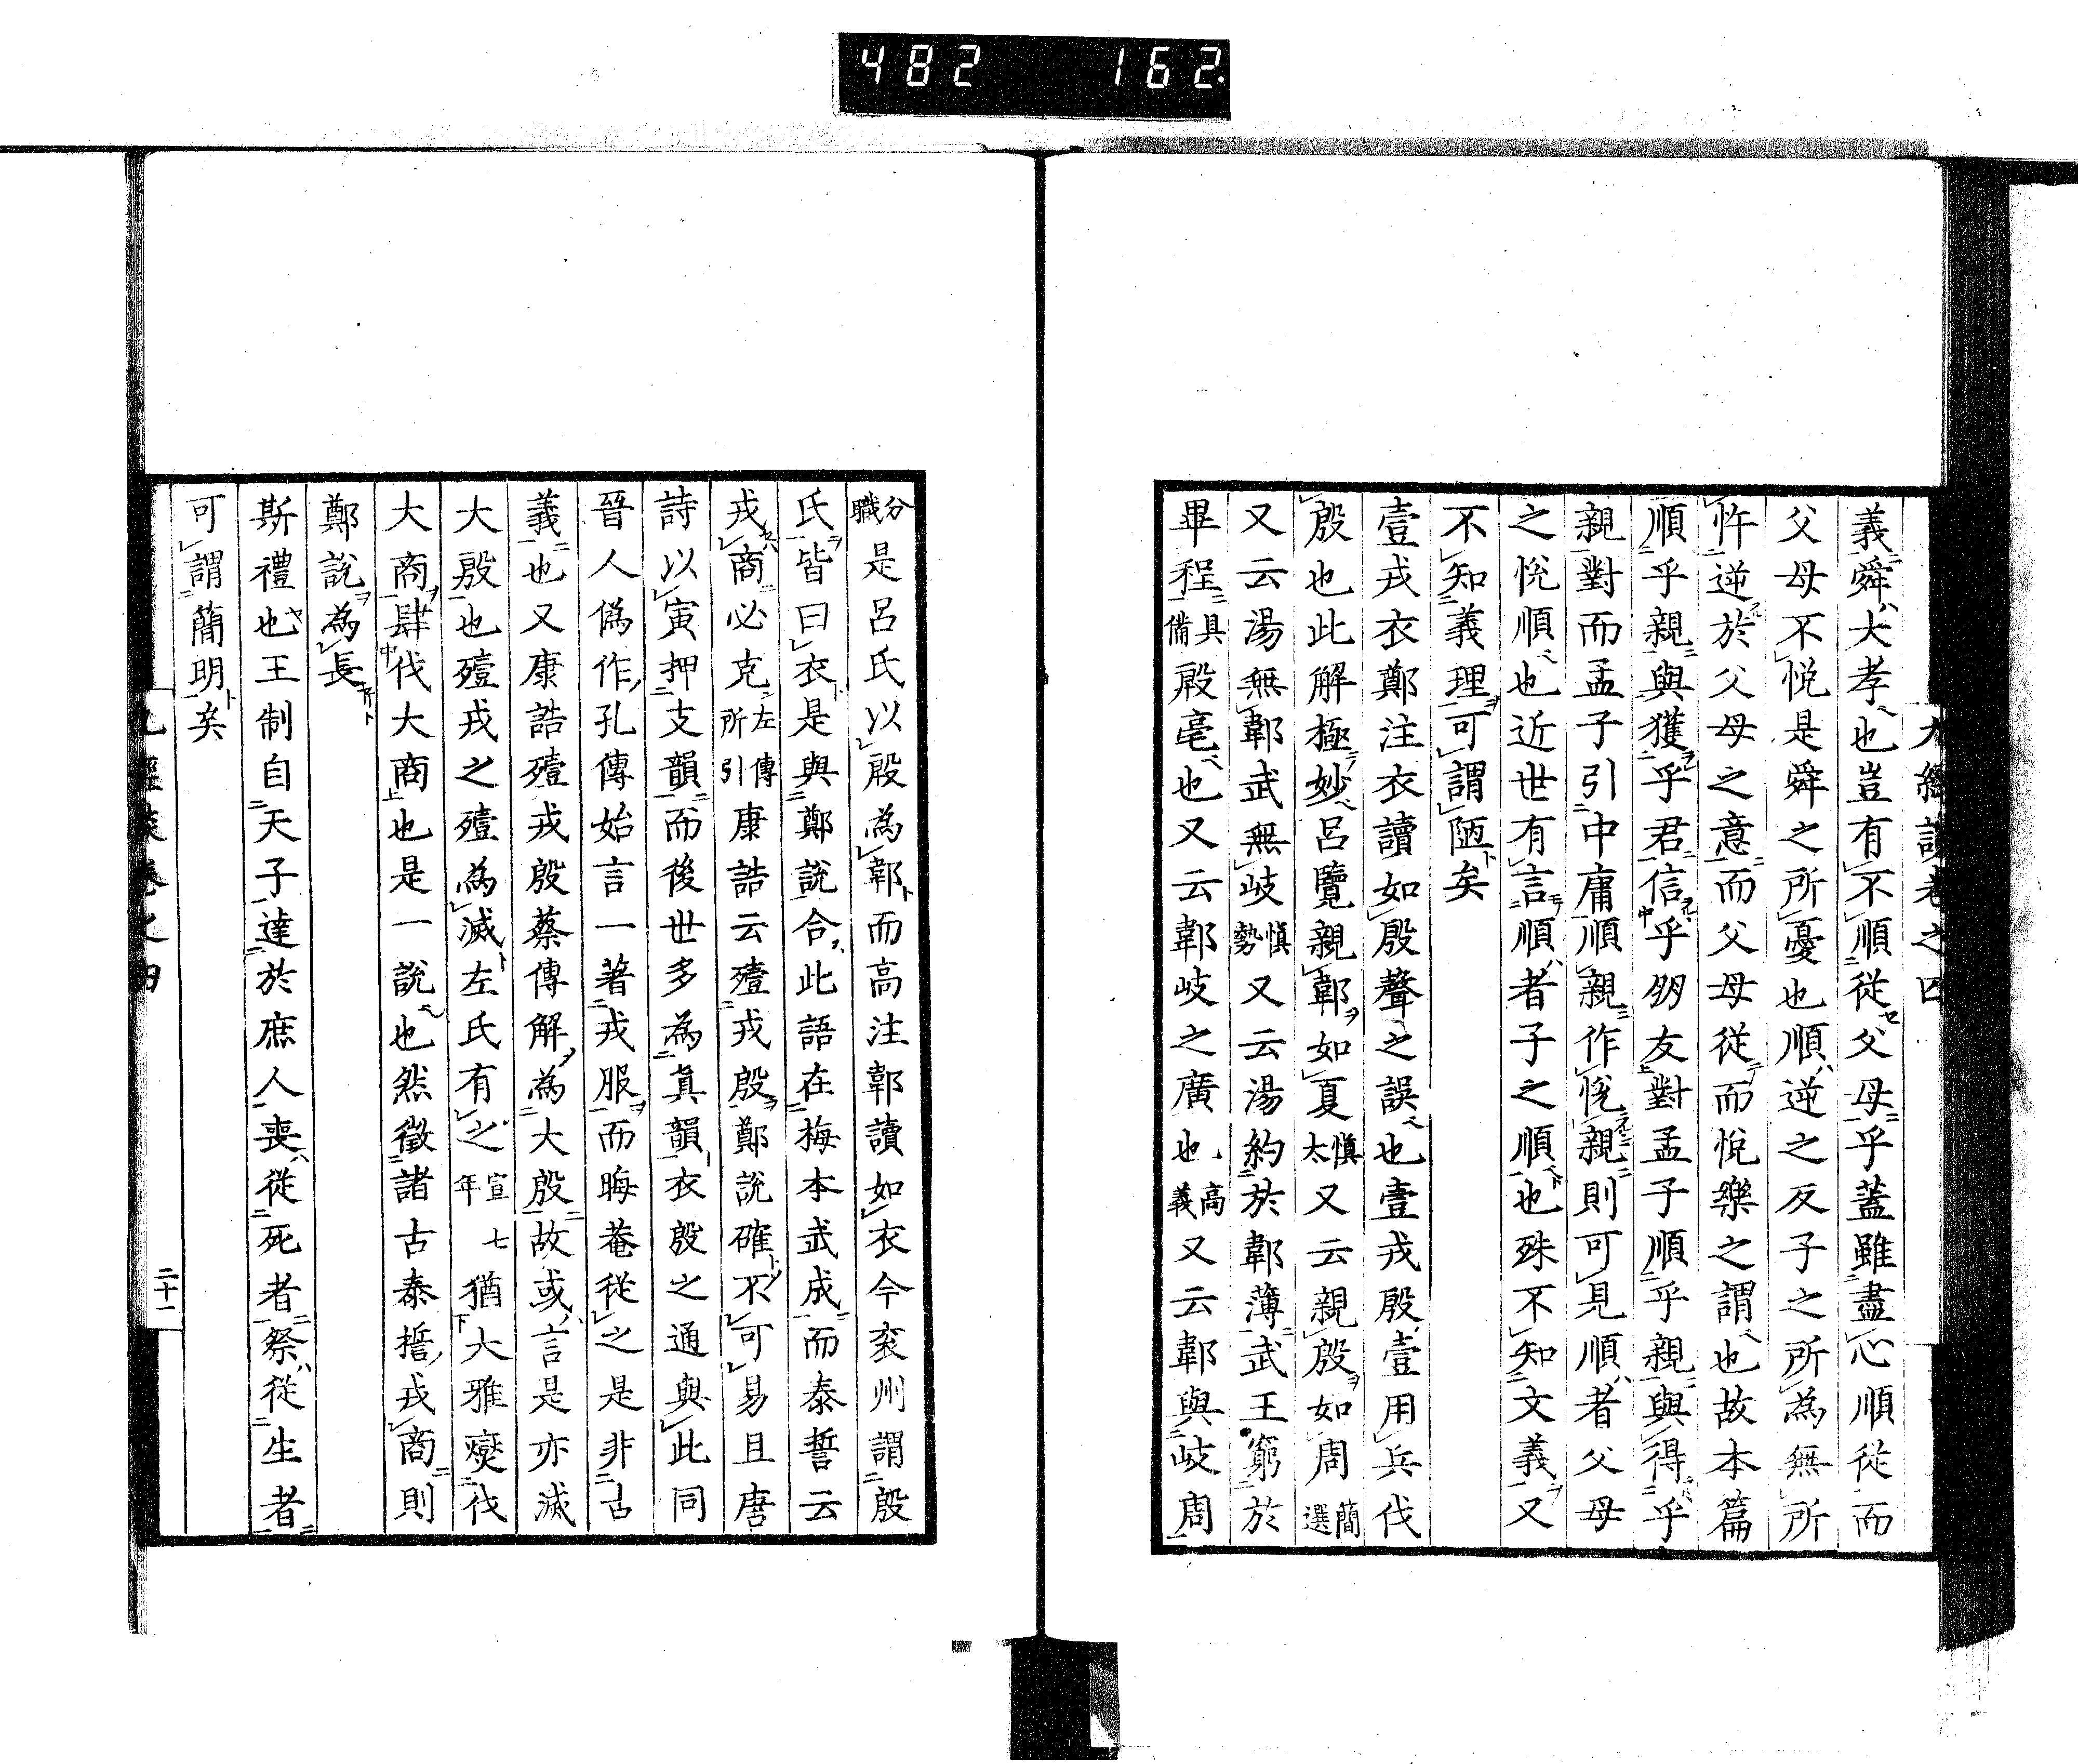 482 162.
九經談卷之四
義舜大孝也豈有不順從父母乎蓋雖盡心順從而
父母不悅是舜之所憂也順逆之反子之所為無所
忤逆於父母之意而父母從而悅樂之謂也故本篇
順乎親與獲乎君信乎朋友對孟子順乎親與得乎
親對而孟子引中庸順親作悅親則可見順者父母
之悅順也近世有言順者子之順也殊不知文義又
不知義理可謂陋矣
壹戎衣鄭注衣讀如殷聲之誤也壹戎殷壹用兵伐
殷也此解極妙呂覽親郼如夏慎大又云親殷如周簡選
又云湯無郼武無岐慎勢又云湯約於郼薄武王窮於
畢程具備殷亳也又云郼岐之廣也高義又云郼與岐周
分職是呂氏以殷為郼而高注郼讀如衣今兗州謂殷
氏皆曰衣是與鄭說合此語在梅本武成而泰誓云
戎商必克左傳所引康誥云殪戎殷鄭說確不可易且唐
詩以寅押支韻而後世多為真韻衣殷之通與此同
晉人偽作孔傳始言一著戎服而晦菴從之是非古
義也又康誥殪戎殷蔡傳解為大殷故或言是亦滅
大殷也殪戎之殪為滅左氏有之宣七年猶大雅燮伐
大商肆伐大商也是一說也然徵諸古泰誓戎商則
鄭說為長
斯禮也王制自天子達於庶人喪從死者祭從生者
可謂簡明矣
九經談卷之四
二十一